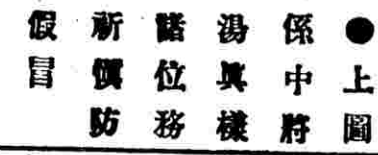 ●上圖
係中將
湯真樣
諸位務
祈慎防
假冒